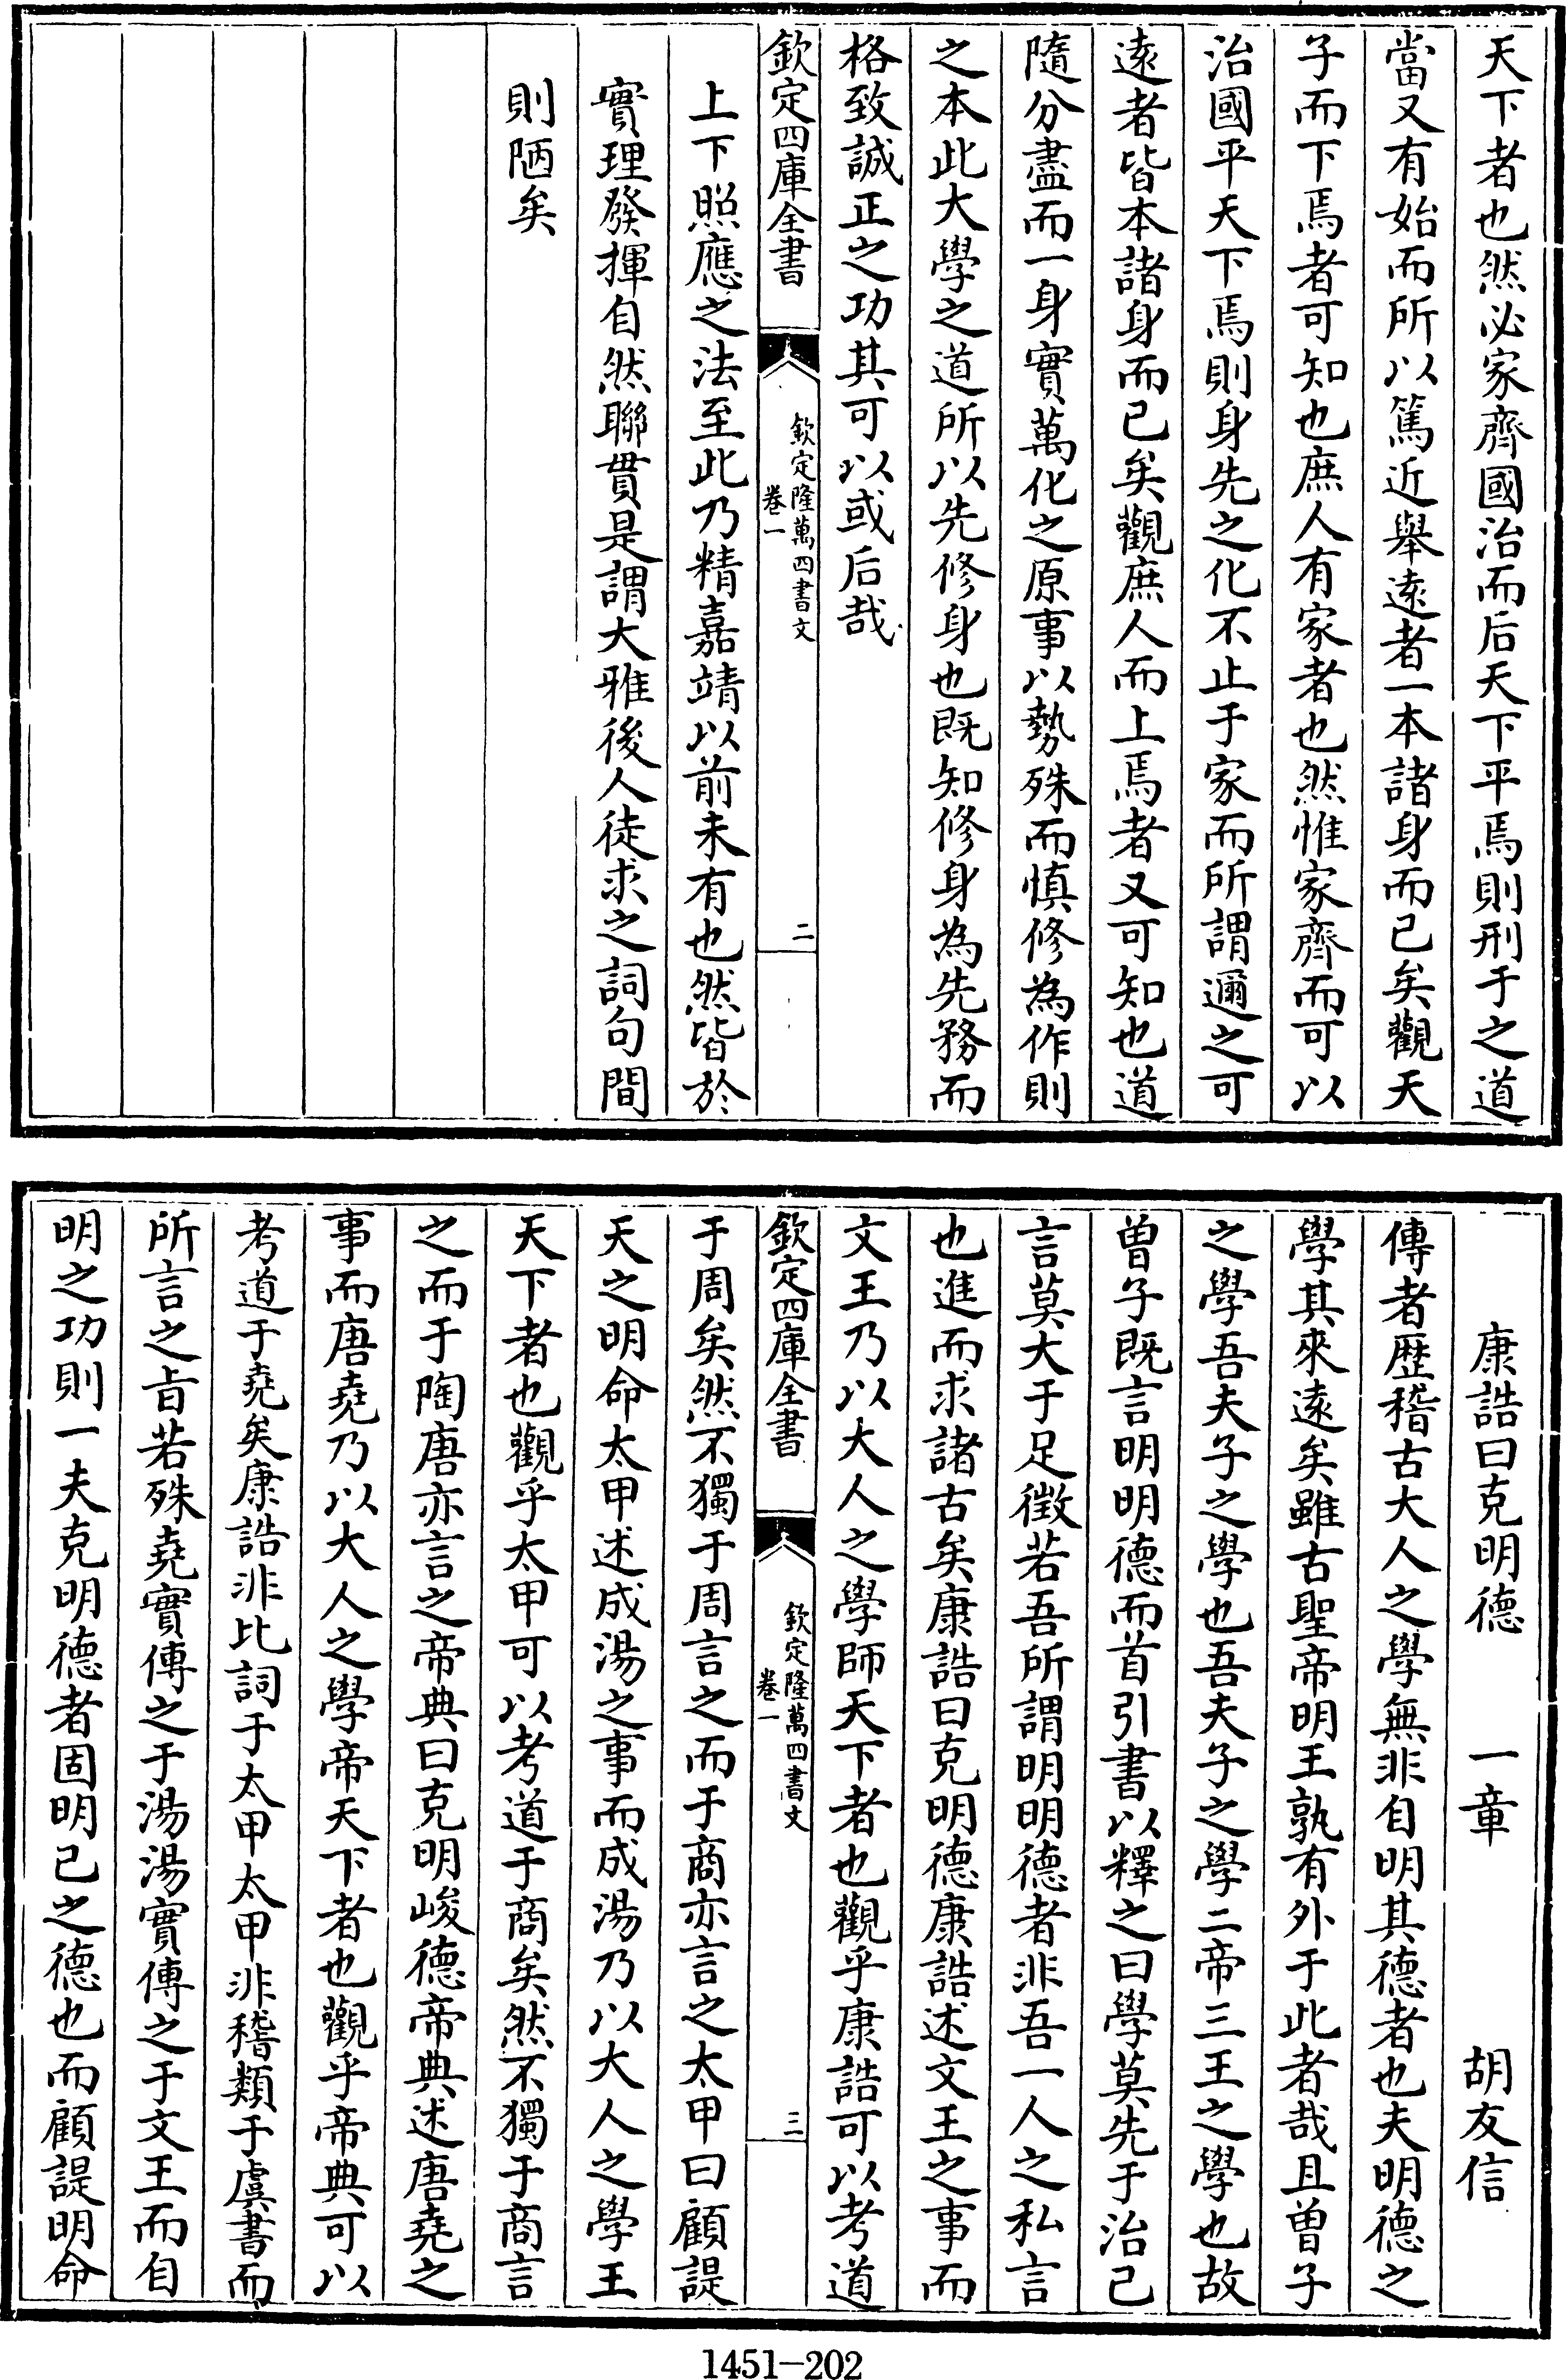 天下者也然必家齊國治而后天下平焉則刑于之道
當又有始而所以篤近舉遠者一本諸身而已矣觀天
子而下焉者可知也庶人有家者也然惟家齊而可以
治國平天下焉則身先之化不止于家而所謂邇之可
遠者皆本諸身而已矣觀庶人而上焉者又可知也道
隨分盡而一身實萬化之原事以勢殊而慎修為作則
之本此大學之道所以先修身也既知修身為先務而
格致誠正之功其可以或后哉
欽定四庫全書
欽定隆萬四書文
卷一
二
上下照應之法至此乃精嘉靖以前未有也然皆於
實理發揮自然聯貫是謂大雅後人徒求之詞句間
則陋矣
康誥曰克明德 一章 胡友信
傳者歷稽古大人之學無非自明其德者也夫明德之
學其來遠矣雖古聖帝明王孰有外于此者哉且曾子
之學吾夫子之學也吾夫子之學二帝三王之學也故
曾子既言明明德而首引書以釋之曰學莫先于治己
言莫大于足徵若吾所謂明明德者非吾一人之私言
也進而求諸古矣康誥曰克明德康誥述文王之事而
文王乃以大人之學師天下者也觀乎康誥可以考道
欽定四庫全書
欽定隆萬四書文
卷一
三
于周矣然不獨于周言之而于商亦言之太甲曰顧諟
天之明命太甲述成湯之事而成湯乃以大人之學王
天下者也觀乎太甲可以考道于商矣然不獨于商言
之而于陶唐亦言之帝典曰克明峻德帝典述唐堯之
事而唐堯乃以大人之學帝天下者也觀乎帝典可以
考道于堯矣康誥非比詞于太甲太甲非稽類于虞書而
所言之旨若殊堯實傳之于湯湯實傳之于文王而自
明之功則一夫克明德者固明已之德也而顧諟明命
1451-202